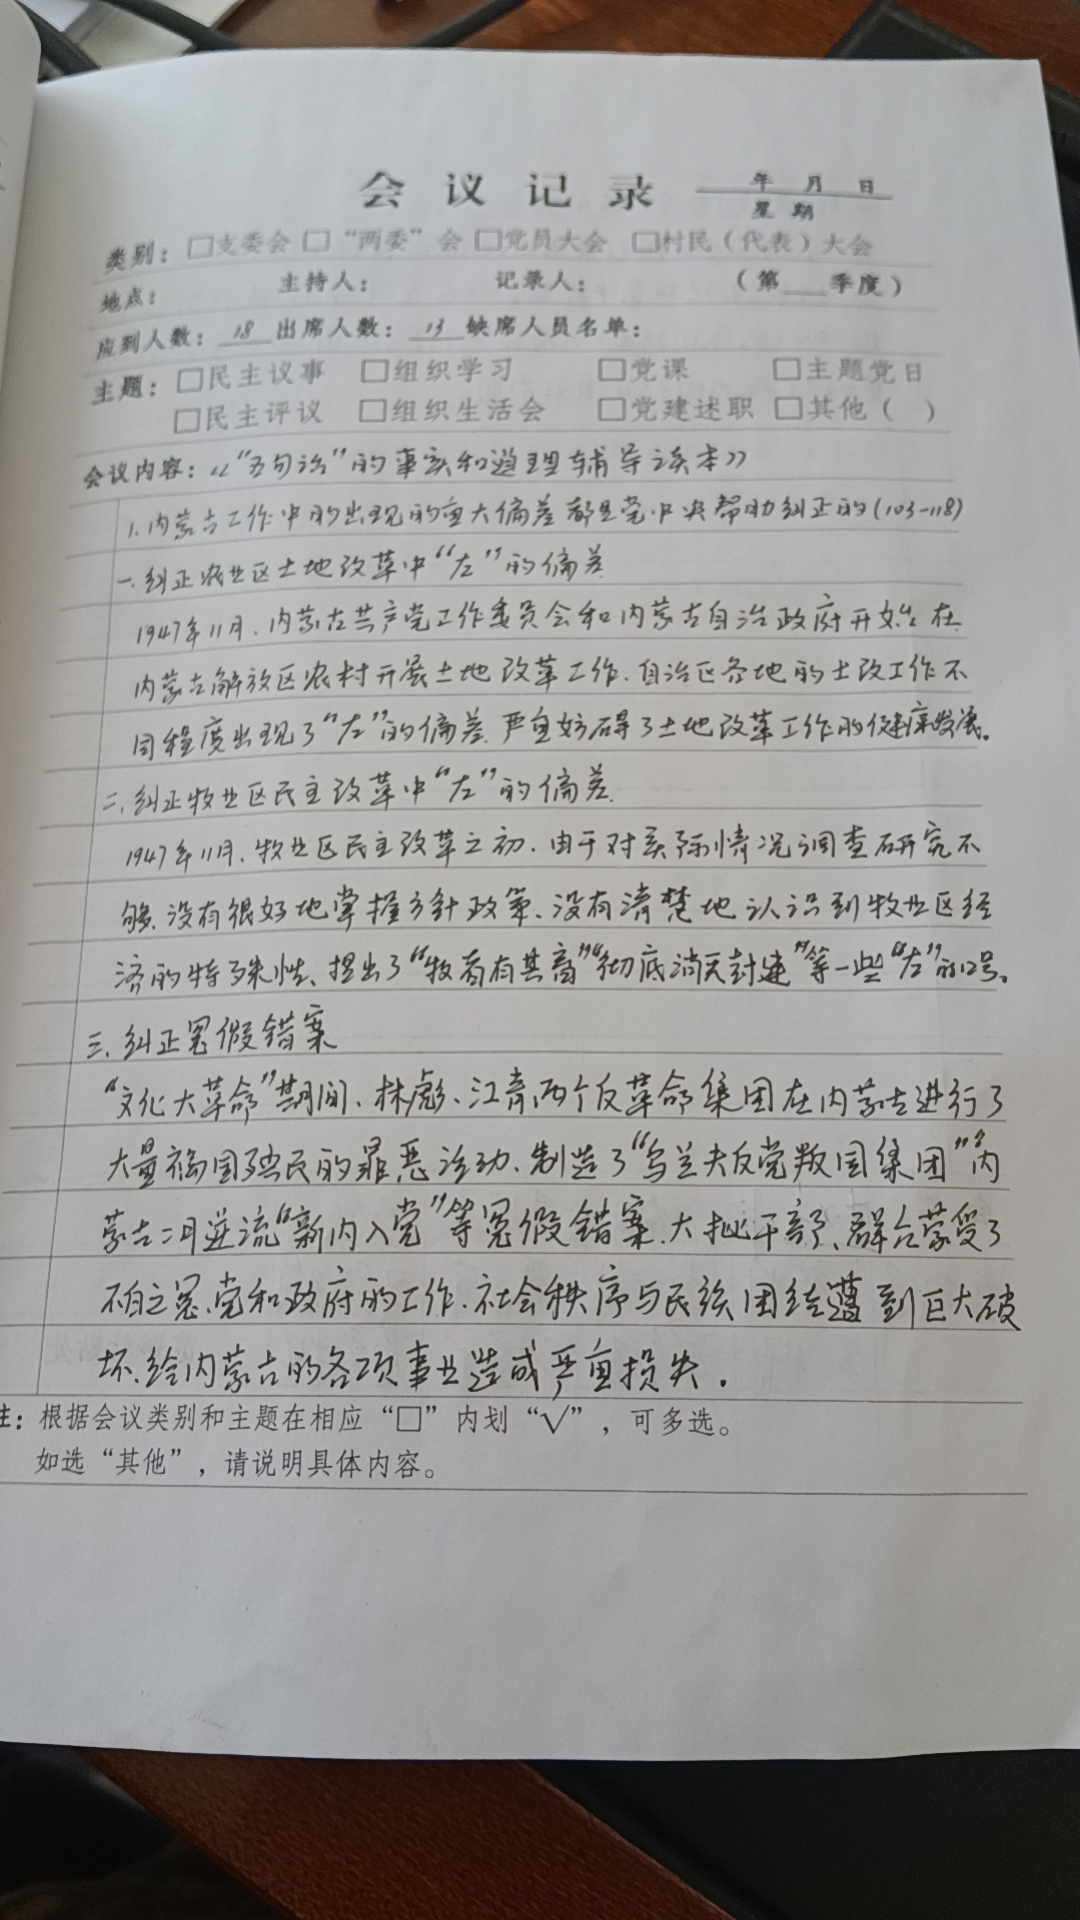 会议记录 年 月 日
星期
类别：□支委会 □“两委”会 □党员大会 □村民（代表）大会
地点： 主持人： 记录人： （第___季度）
应到人数：18 出席人数：13 缺席人员名单：
主题：□民主议事 □组织学习 □党课 □主题党日
□民主评议 □组织生活会 □党建述职 □其他（ ）
会议内容：《“五句话”的事实和道理辅导读本》
1.内蒙古工作中的出现的重大偏差都是党中央帮助纠正的(103-118)
一.纠正农业区土地改革中“左”的偏差
1947年11月、内蒙古共产党工作委员会和内蒙古自治政府开始在
内蒙古解放区农村开展土地改革工作、自治区各地的土改工作不
同程度出现了“左”的偏差、严重妨碍了土地改革工作的健康发展。
二.纠正牧业区民主改革中“左”的偏差
1947年11月、牧业区民主改革之初、由于对实际情况调查研究不
够、没有很好地掌握方针政策、没有清楚地认识到牧业区经
济的特殊性、提出了“牧者有其畜”“彻底消灭封建”等一些“左”的口号。
三、纠正冤假错案
“文化大革命”期间、林彪、江青两个反革命集团在内蒙古进行了
大量祸国殃民的罪恶活动、制造了“乌兰夫反党叛国集团”“内
蒙古二月逆流”“新内人党”等冤假错案、大批干部、群众蒙受了
不白之冤、党和政府的工作、社会秩序与民族团结遭到巨大破
坏、给内蒙古的各项事业造成严重损失。
注：根据会议类别和主题在相应“□”内划“√”，可多选。
如选“其他”，请说明具体内容。